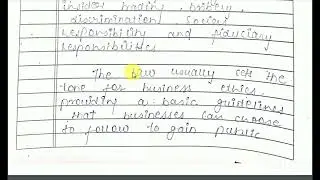 insider trading, bribery,
discrimination, social
responsibility and fiduciary
responsibilities
The law usually set the
tone for business ethics,
providing a basic guidelines
that businesses can choose
to follow to gain public